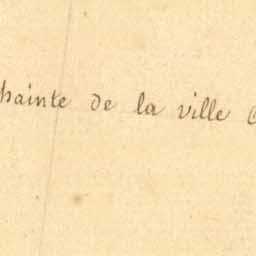 hainte de la ville